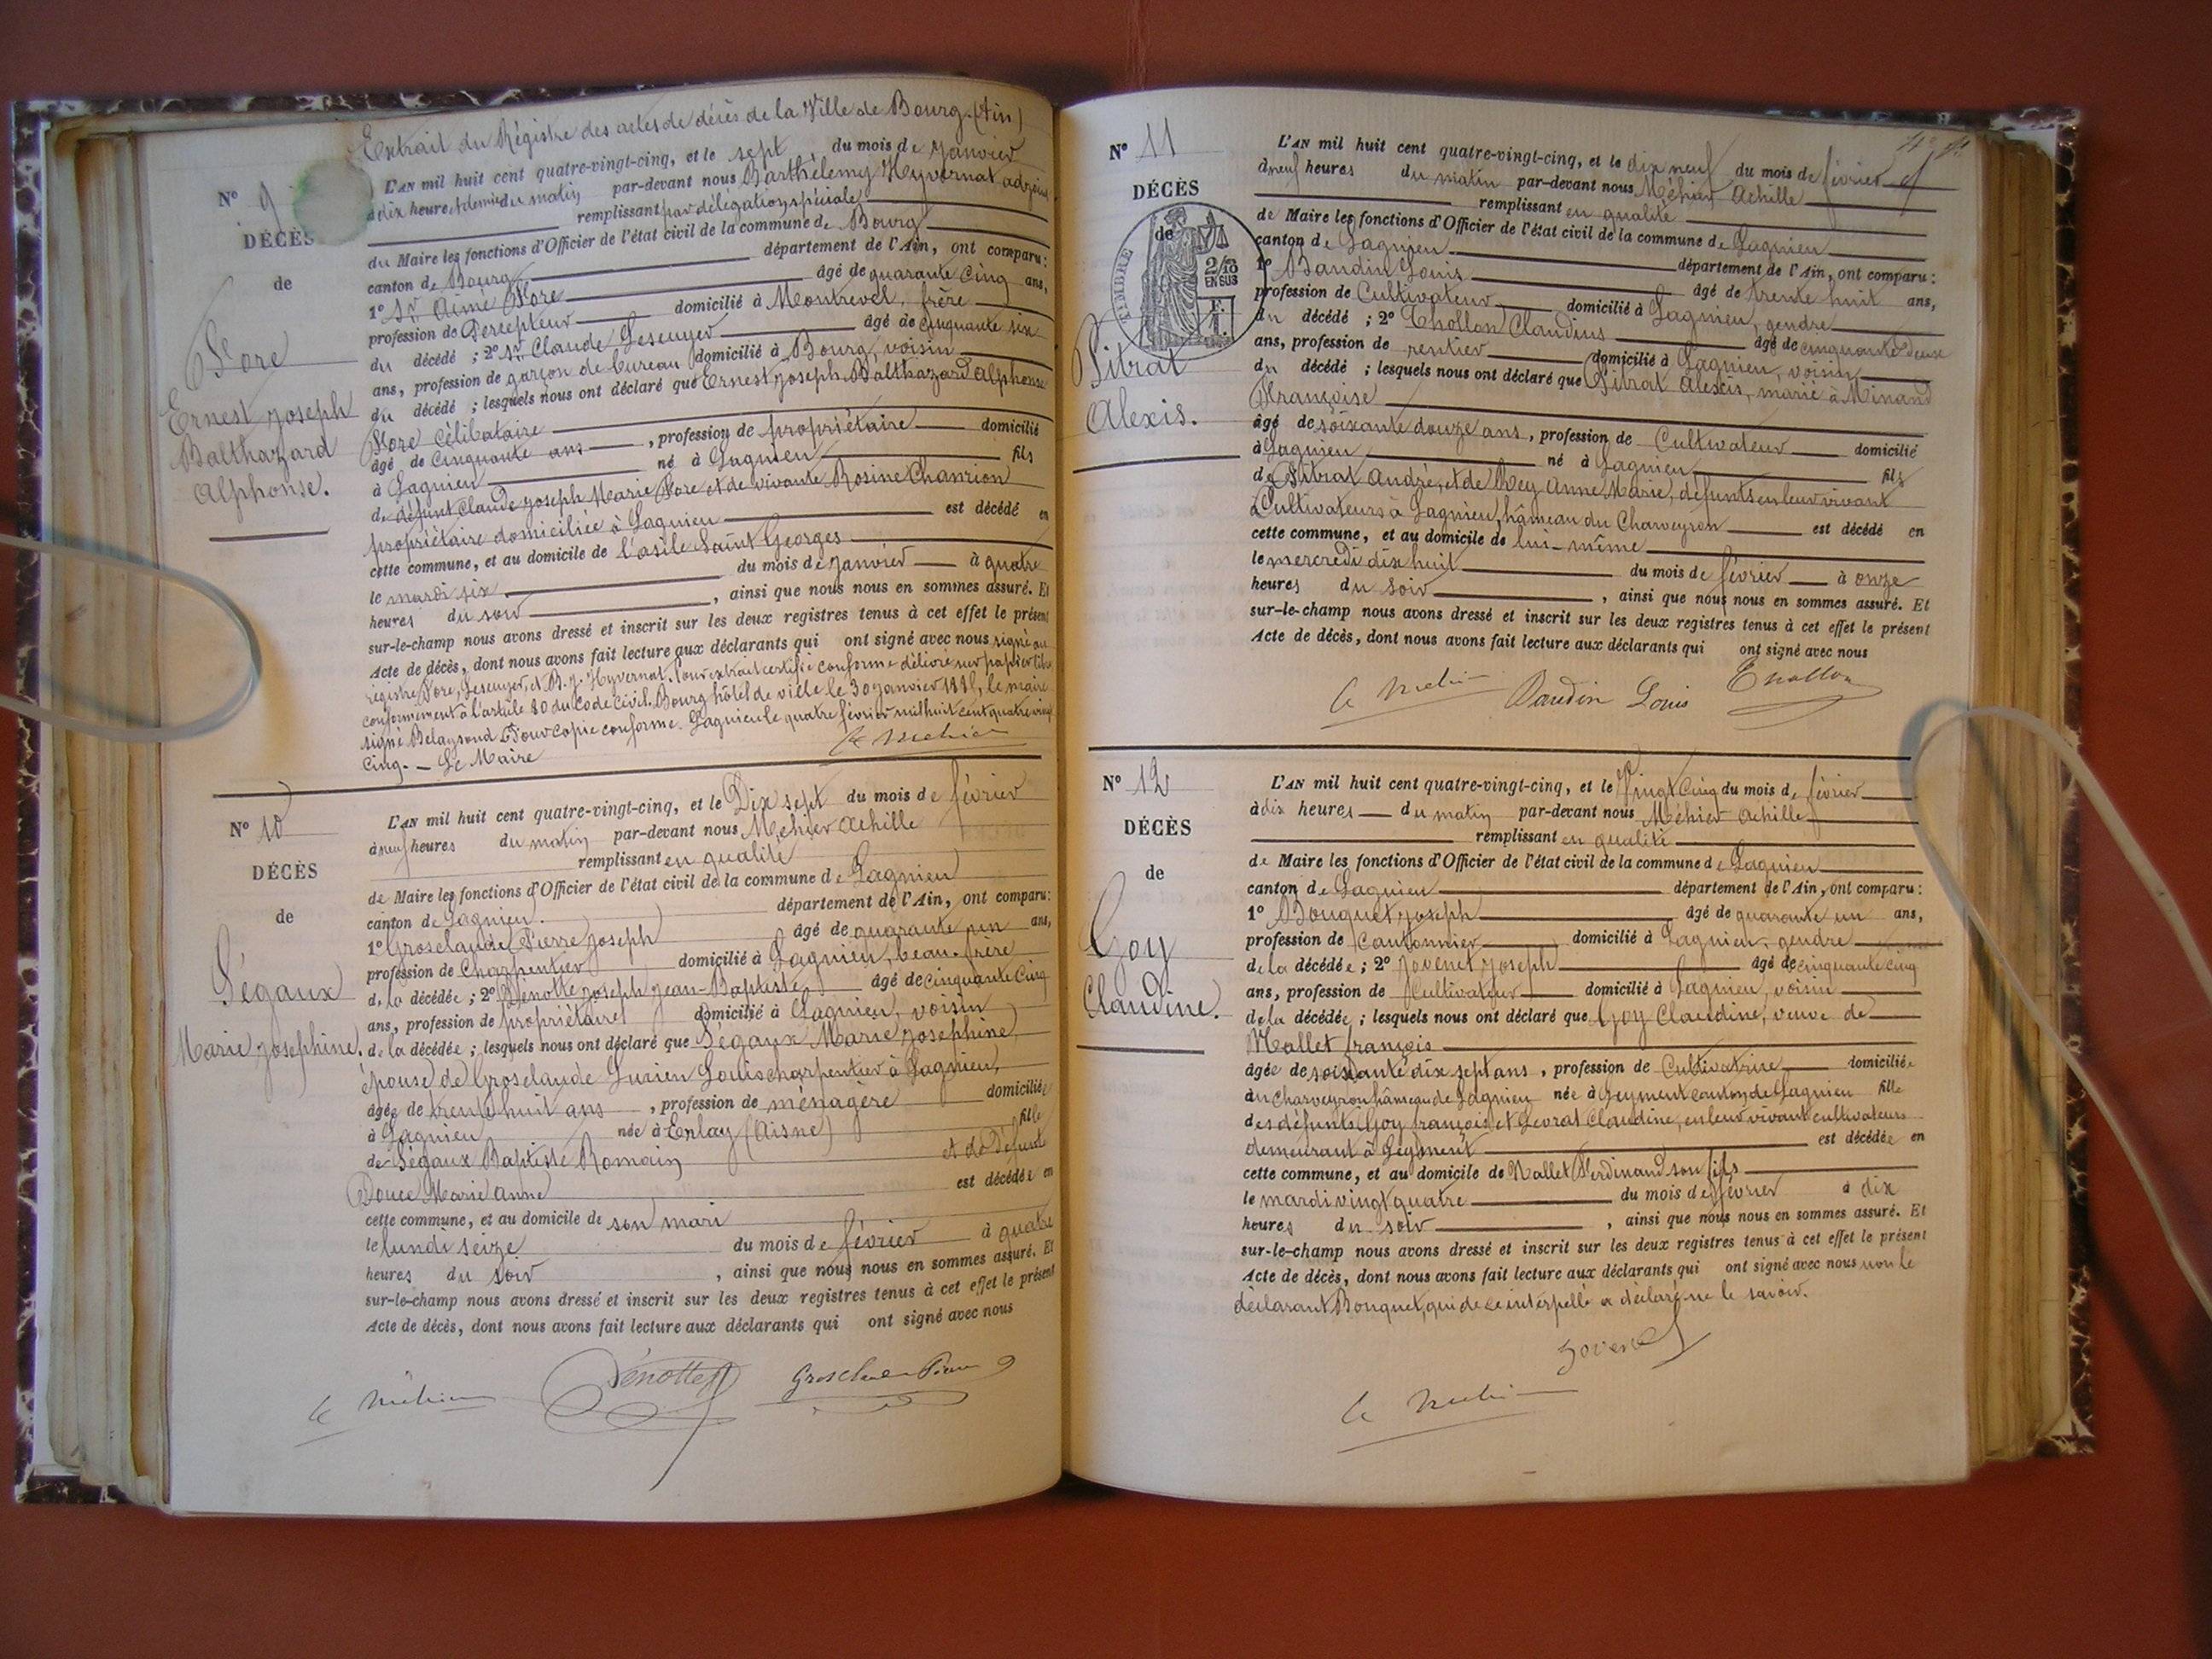 Extrait du Régistre des actes de décès de la Ville de Bourg. (Ain)
N° 9
DÉCÈS
de
Fore
Ernest Joseph
Balthazard
Alphonse.
L'AN mil huit cent quatre-vingt-cinq, et le sept, du mois de janvier
à dix heures et demie du matin par-devant nous Barthélemy Hyvernat adjoint
remplissant par délégation spéciale
du Maire les fonctions d'Officier de l'état civil de la commune de Bourg
canton de Bourg département de l'Ain, ont comparu:
1° Sr Aimé Fore âgé de quarante cinq ans,
profession de Percepteur domicilié à Montrevel, frère
du décédé ; 2° Sr Claude Lescuyer âgé de cinquante six
ans, profession de garçon de bureau domicilié à Bourg, voisin
du décédé ; lesquels nous ont déclaré que Ernest Joseph Balthazard Alphonse
Fore célibataire
âgé de cinquante ans, profession de propriétaire domicilié
à Lagnieu né à Lagnieu fils
de défunt Claude Joseph Marie Fore et de vivante Rosine Chanrion
propriétaire domiciliée à Lagnieu est décédé en
cette commune, et au domicile de l'asile Saint Georges
le mardi six du mois de janvier à quatre
heures du soir, ainsi que nous nous en sommes assuré. Et
sur-le-champ nous avons dressé et inscrit sur les deux registres tenus à cet effet le présent
Acte de décès, dont nous avons fait lecture aux déclarants qui ont signé avec nous signé au
registre Fore, Lescuyer, et B. J. Hyvernat. Pour extrait certifié conforme délivré sur papier libre
conformément à l'article 80 du Code Civil. Bourg hôtel de ville le 30 janvier 1885, le maire
signé Pour copie conforme. Lagnieu le quatre février mil huit cent quatre vingt
cinq. — Le Maire
N° 10
DÉCÈS
de
Ségaux
Marie Josephine.
L'AN mil huit cent quatre-vingt-cinq, et le Dix sept du mois de février
à neuf heures du matin par-devant nous Méhier Achille
remplissant en qualité
de Maire les fonctions d'Officier de l'état civil de la commune de Lagnieu
canton de Lagnieu. département de l'Ain, ont comparu:
1° Grosclaude Pierre Joseph âgé de quarante un ans,
profession de Charpentier domicilié à Lagnieu, beau-frère
de la décédée ; 2° Penotte Joseph Jean-Baptiste, âgé de cinquante cinq
ans, profession de propriétaire domicilié à Lagnieu, voisin
de la décédée ; lesquels nous ont déclaré que Ségaux Marie Josephine,
épouse de Grosclaude Lucien Louis charpentier à Lagnieu,
âgée de trente huit ans, profession de ménagère domiciliée
à Lagnieu née à Erlay (Aisne) fille
de Ségaux Baptiste Romain et de défunte
Douce Marie Anne est décédée en
cette commune, et au domicile de son mari
le lundi seize du mois de février à quatre
heures du soir, ainsi que nous nous en sommes assuré. Et
sur-le-champ nous avons dressé et inscrit sur les deux registres tenus à cet effet le présent
Acte de décès, dont nous avons fait lecture aux déclarants qui ont signé avec nous
N° 11
DÉCÈS
de
TIMBRE
2/10
EN SUS
Pitrat
Alexis.
L'AN mil huit cent quatre-vingt-cinq, et le dix neuf du mois de février
à neuf heures du matin par-devant nous Méhier Achille
remplissant en qualité
de Maire les fonctions d'Officier de l'état civil de la commune de Lagnieu
canton de Lagnieu département de l'Ain, ont comparu:
1° Baudin Louis âgé de trente huit ans,
profession de Cultivateur domicilié à Lagnieu, gendre
du décédé ; 2° Chollon Claudius âgé de cinquante deux
ans, profession de rentier domicilié à Lagnieu, voisin
du décédé ; lesquels nous ont déclaré que Pitrat Alexis, marié à Minand
Françoise
âgé de soixante douze ans, profession de Cultivateur domicilié
à Lagnieu né à Lagnieu fils
de Pitrat André, et de Rey Anne Marie, défunts en leur vivant
Cultivateurs à Lagnieu, hâmeau du Charveyron est décédé en
cette commune, et au domicile de lui-même
le mercredi dix huit du mois de février à onze
heures du soir, ainsi que nous nous en sommes assuré. Et
sur-le-champ nous avons dressé et inscrit sur les deux registres tenus à cet effet le présent
Acte de décès, dont nous avons fait lecture aux déclarants qui ont signé avec nous
Baudin Louis
N° 12
DÉCÈS
de
Goy
Claudine.
L'AN mil huit cent quatre-vingt-cinq, et le Vingt cinq du mois de février
à dix heures du matin par-devant nous Méhier Achille
remplissant en qualité
de Maire les fonctions d'Officier de l'état civil de la commune de Lagnieu
canton de Lagnieu département de l'Ain, ont comparu:
1° Bouquet Joseph âgé de quarante un ans,
profession de Cantonnier domicilié à Lagnieu, gendre
de la décédée ; 2° Jovenet Joseph âgé de cinquante cinq
ans, profession de Cultivateur domicilié à Lagnieu, voisin
de la décédée ; lesquels nous ont déclaré que Goy Claudine, veuve de
Mallet françois
âgée de soixante dix sept ans, profession de Cultivatrice domiciliée
au Charveyron hâmeau de Lagnieu née à Leyment canton de Lagnieu fille
des défunts Goy françois et Gevrat Claudine, en leur vivant cultivateurs
demeurant à Leyment est décédée en
cette commune, et au domicile de Mallet Ferdinand son fils
le mardi vingt quatre du mois de février à dix
heures du soir, ainsi que nous nous en sommes assuré. Et
sur-le-champ nous avons dressé et inscrit sur les deux registres tenus à cet effet le présent
Acte de décès, dont nous avons fait lecture aux déclarants qui ont signé avec nous non le
déclarant Bouquet, qui de ce interpellé a déclaré ne le savoir.